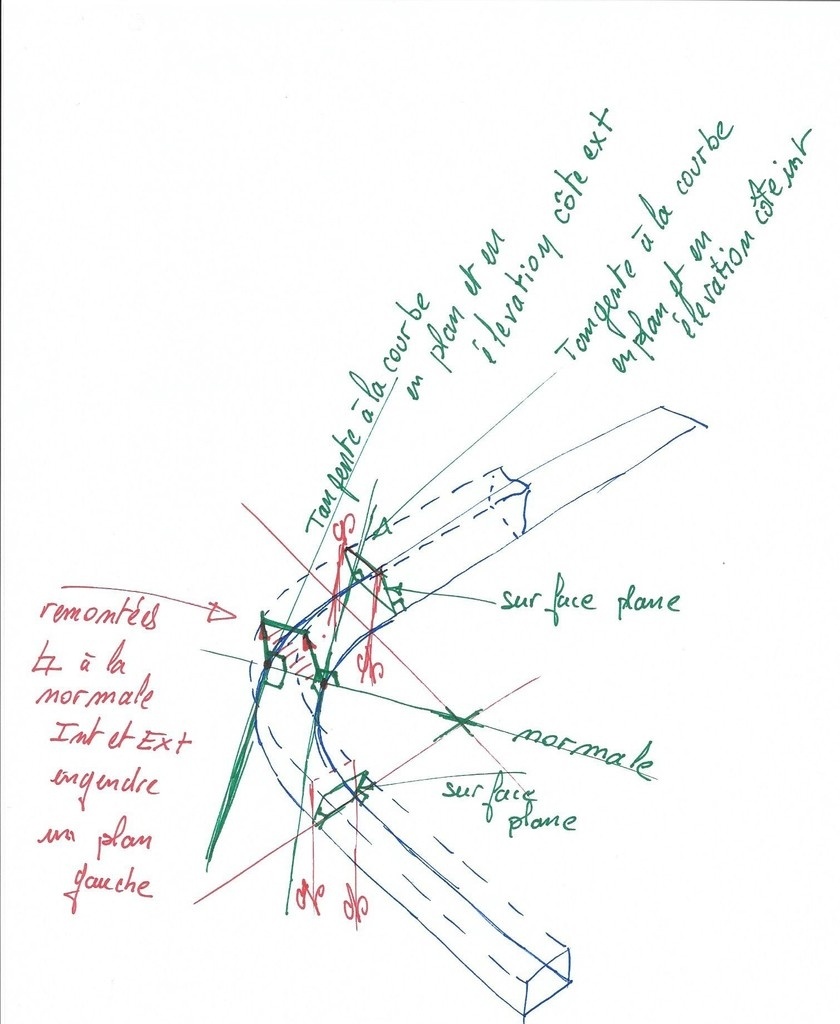 Tangente à la courbe
en plan et en
élevation côte ext
Tangente à la courbe
en plan et en
élevation côte int
surface plane
remontées
à la
normale
Int et Ext
engendre
un plan
gauche
normale
surface
plane